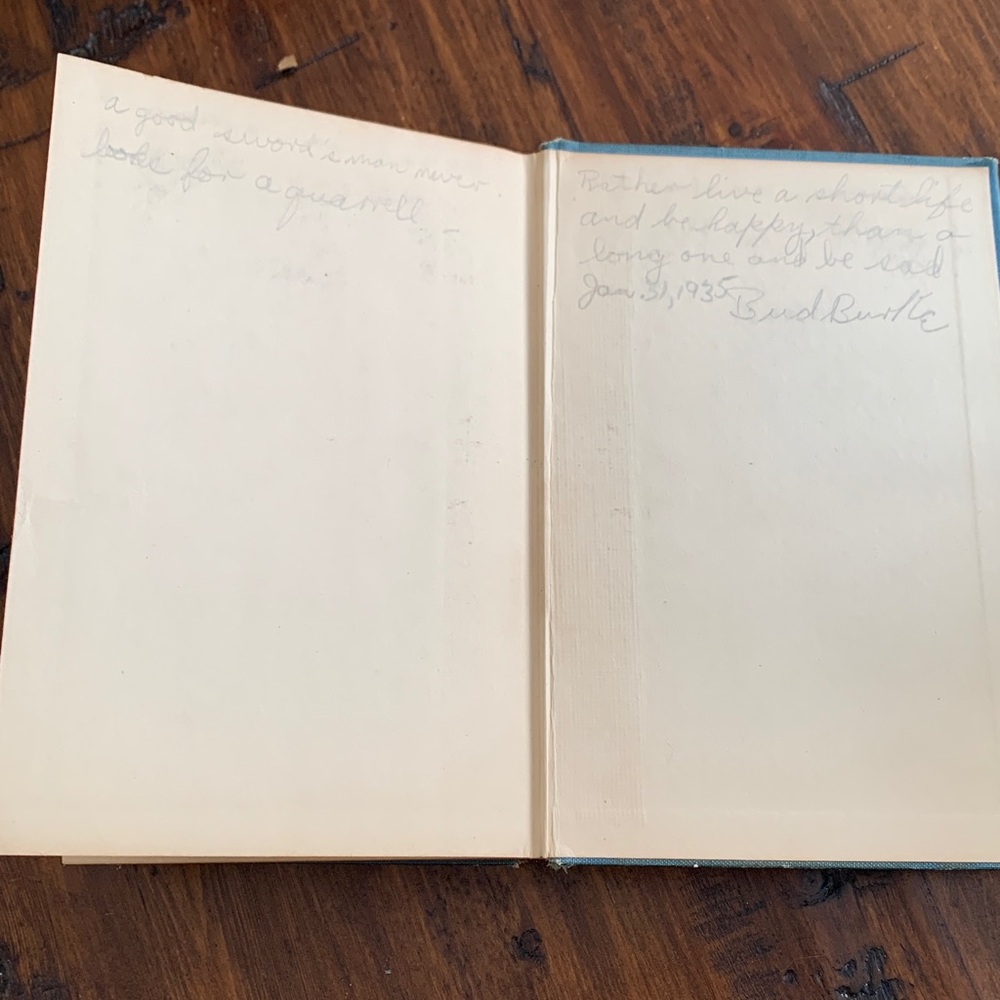 a good sword's man never
looks for a quarrell -
Rather live a short life
and be happy, than a
long one and be sad
Jan. 31, 1935 Bud Burke